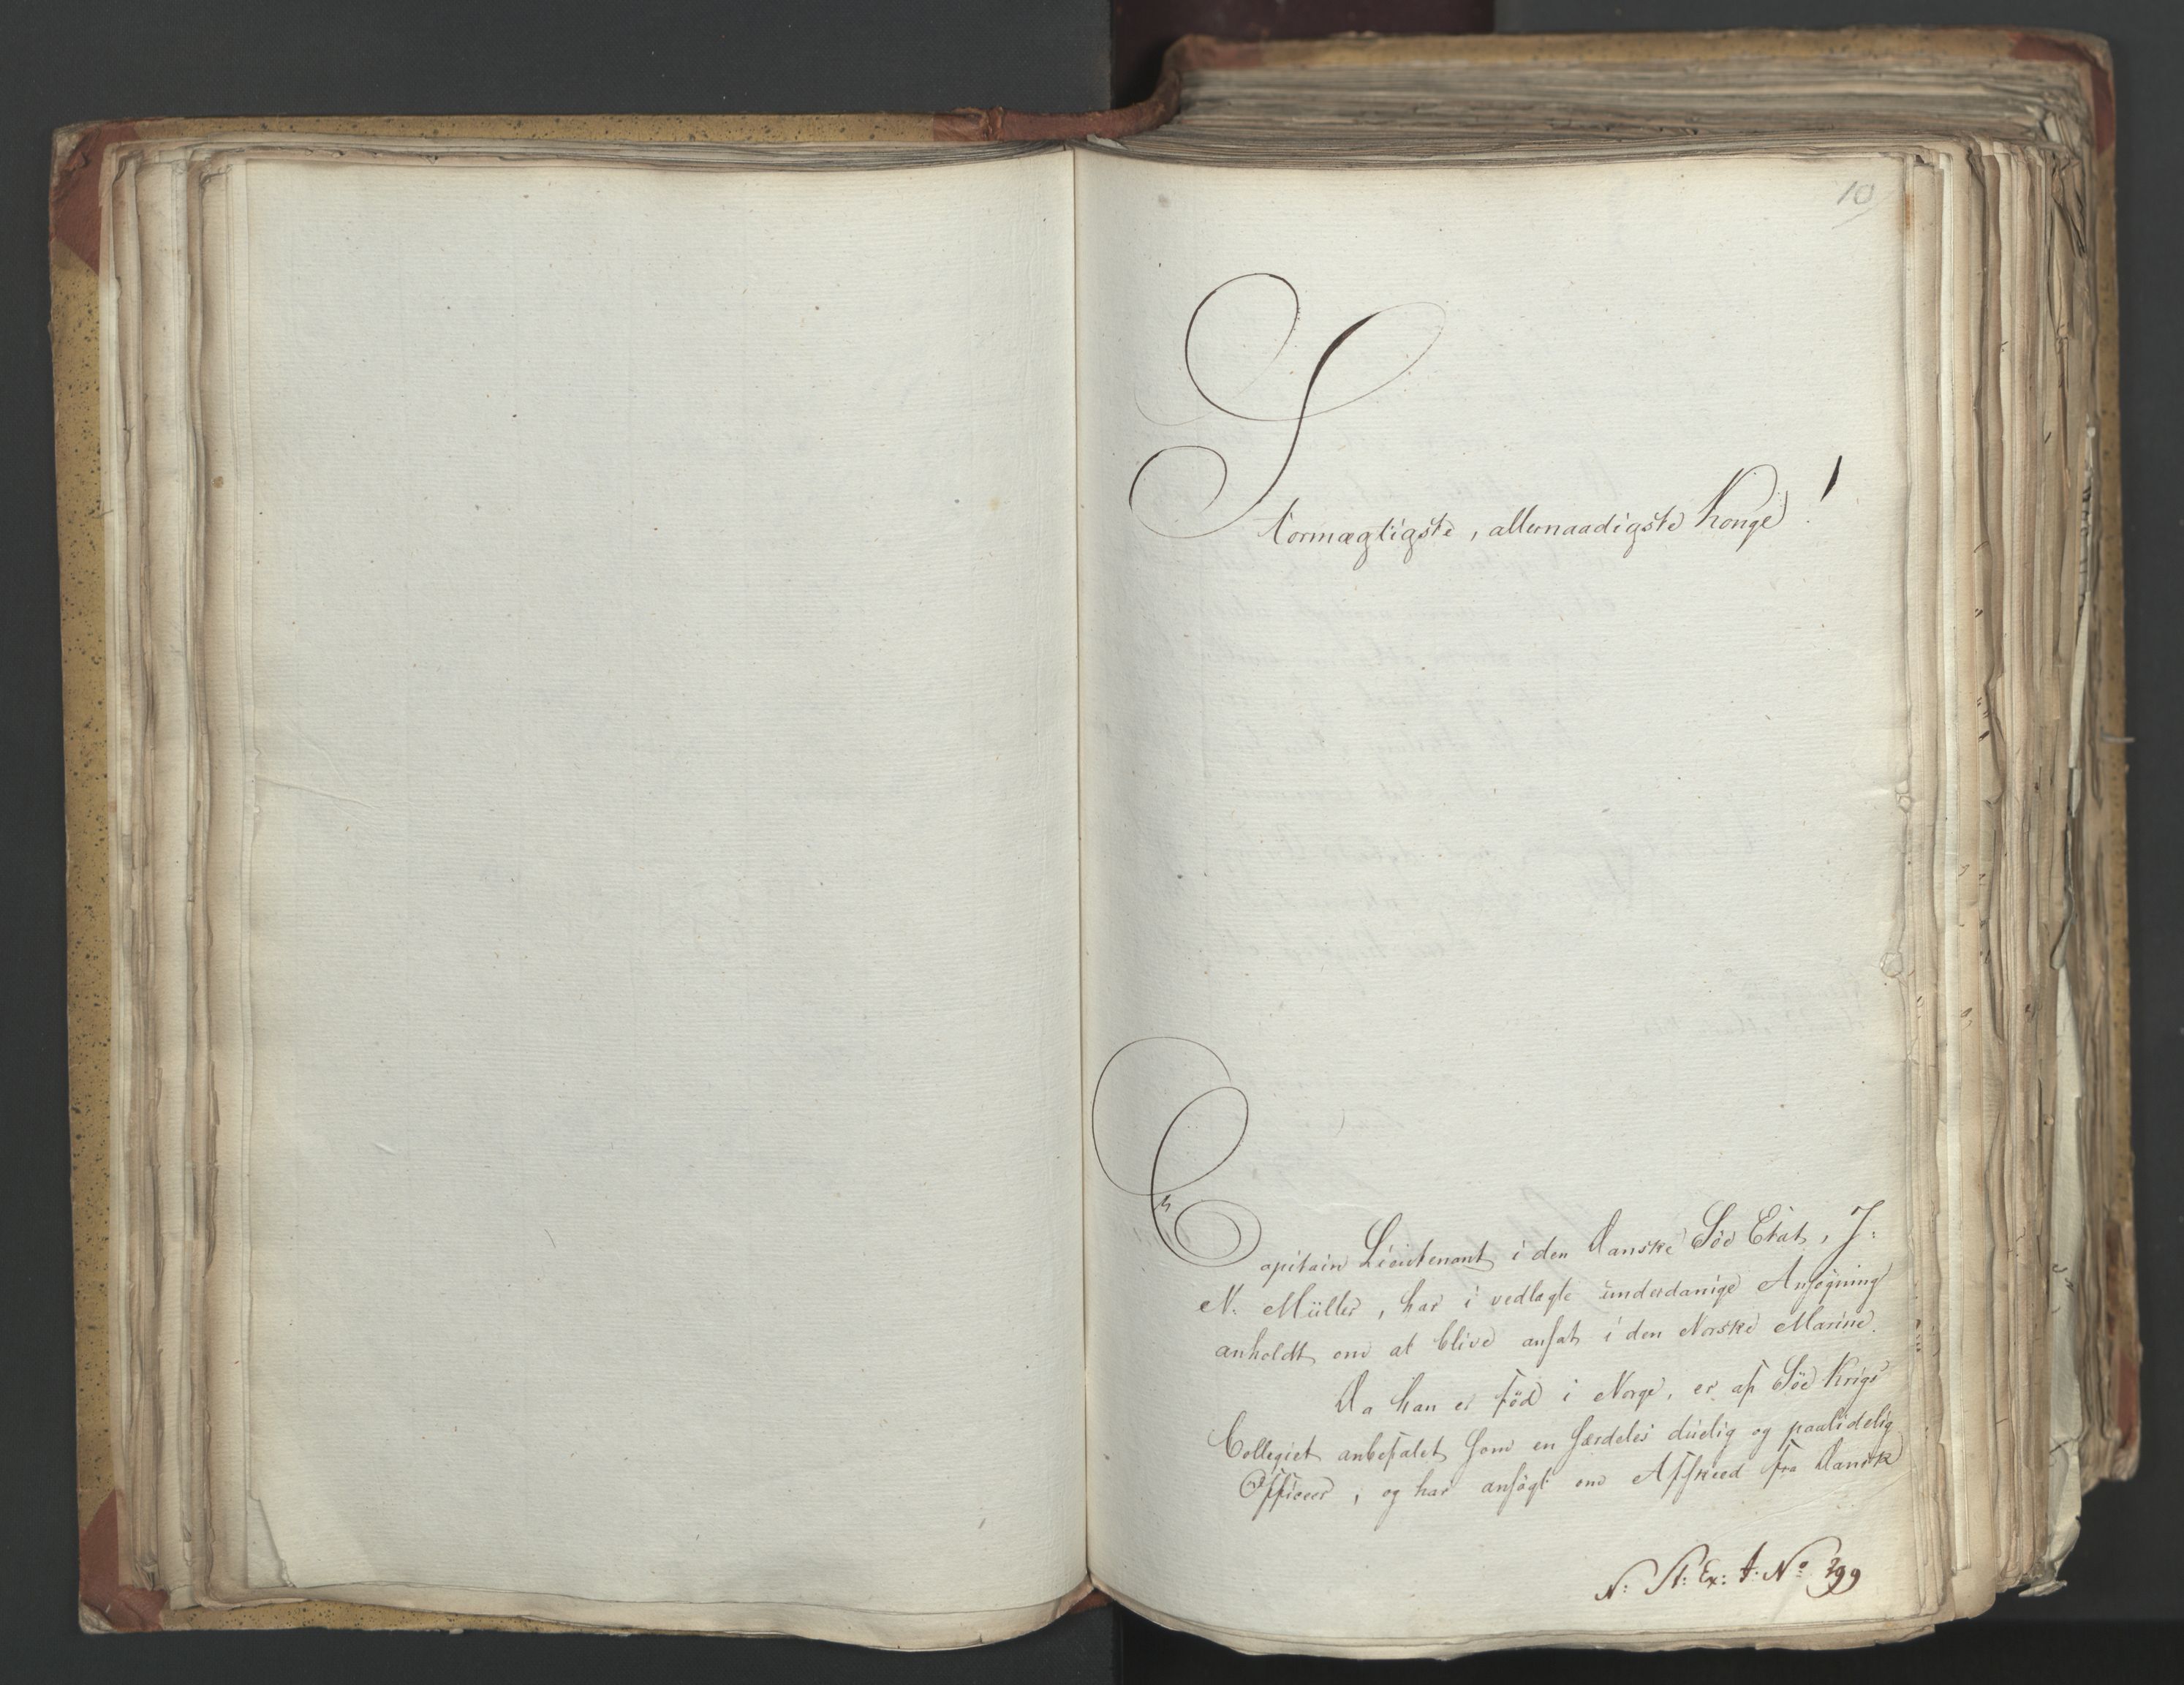 10
Stormægtigste, allernaadigste Konge!
Capitain Lieutenant i den Danske Søe Etat, J:
N. Müller, har i vedlagte underdanige Ansøgning
anholdt om at blive ansat i den Norske Marine.
Da han er fød i Norge, er af Søe Krigs
Collegiet anbefalet som en særdeles duelig og paalidelig
Officeer, og har ansøgt om Afskeed fra Dansk
N: St: Ex: A: No 299